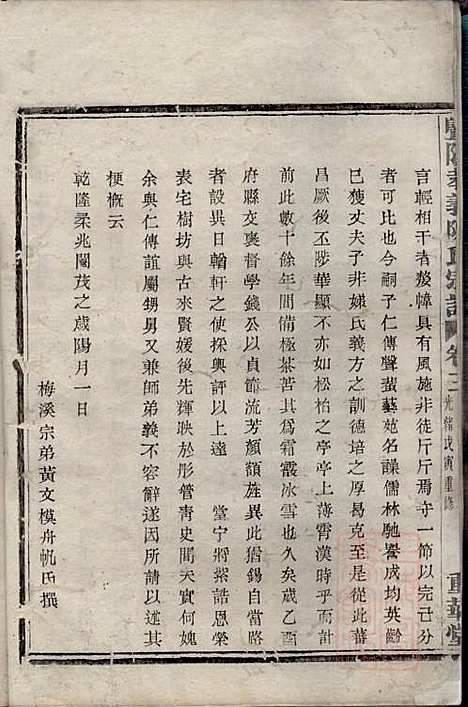 暨陽孝義陳氏宗譜 卷十二 光緒戊寅重修 重華堂
言輕相干者嫠幃具有風施非徒斤斤焉守一節以完己分
者可比也今嗣子仁傳聲蜚藝苑名譟儒林馳譽成均英齡
已獲丈夫子非娣氏義方之訓德培之厚曷克至是從此蕃
昌厥後丕陟華顯不亦如松柏之亭亭上薄霄漢時乎而計
前此數十餘年間備極荼苦其爲霜霰冰雪也久矣歲乙酉
府縣交褒督學錢公以貞節流芳顏額旌異此猶錫自當路
者設異日輶軒之使採輿評以上達 堂宁將紫誥恩榮
表宅樹坊與古來賢媛後先輝映於彤管青史間夫實何媿
余與仁傳誼屬甥舅又兼師弟義不容辭遂因所請以述其
梗概云
乾隆柔兆閹茂之歲陽月一日
梅溪宗弟黃文模舟帆氏撰